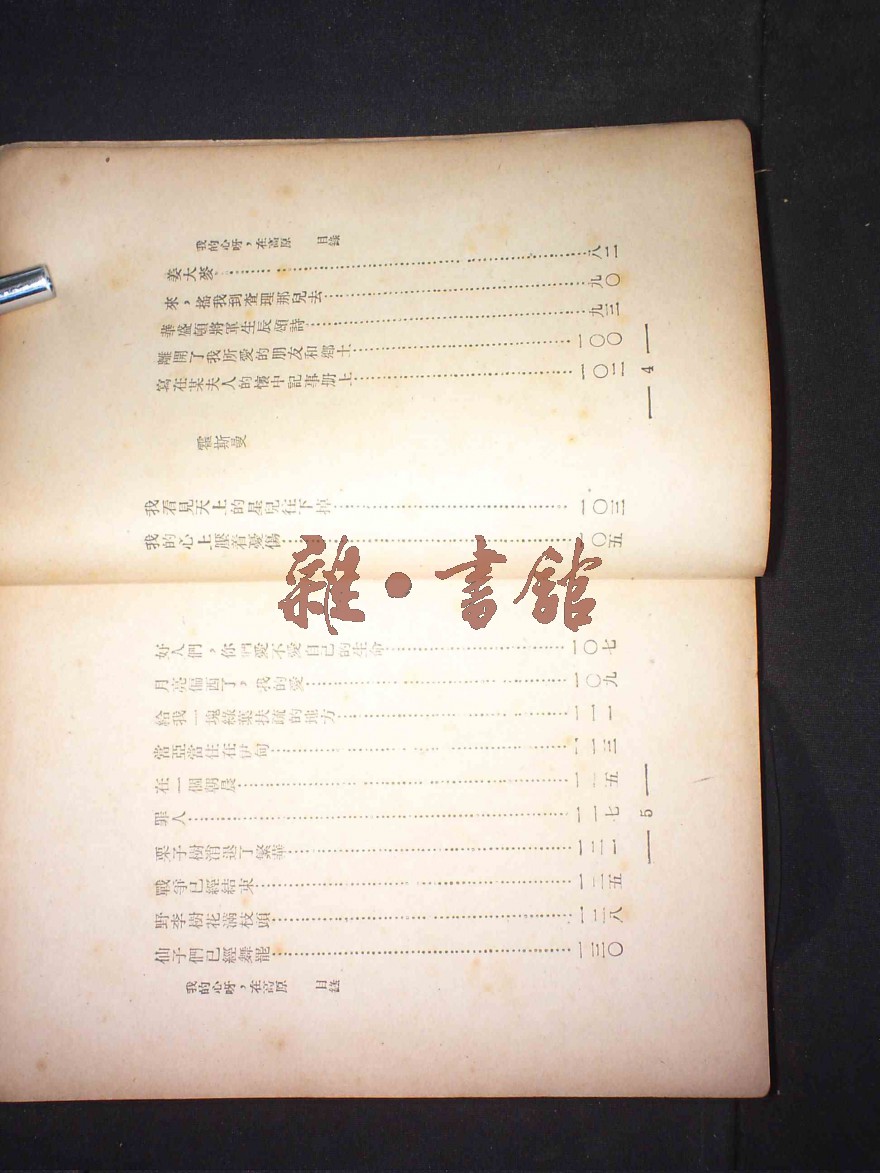 我的心呀，在高原 目錄
姜大麥……八二
來，搖我到查理那兒去……九〇
華盛頓將軍生辰頌詩……九三
離開了我所愛的朋友和鄉土……一〇〇
寫在某夫人的懷中記事册上……一〇二
4
霍斯曼
我看見天上的星兒往下掉……一〇三
我的心上壓着憂傷……一〇五
雜·書館
好人們，你們愛不愛自己的生命……一〇七
月亮偏西了，我的愛……一〇九
給我一塊綠葉扶疏的地方……一一一
當亞當住在伊甸……一一三
在一個朝晨……一一五
罪人……一一七
栗子樹消退了繁華……一二一
戰爭已經結束……一二五
野李樹花滿枝頭……一二八
仙子們已經舞罷……一三〇
5
我的心呀，在高原 目錄